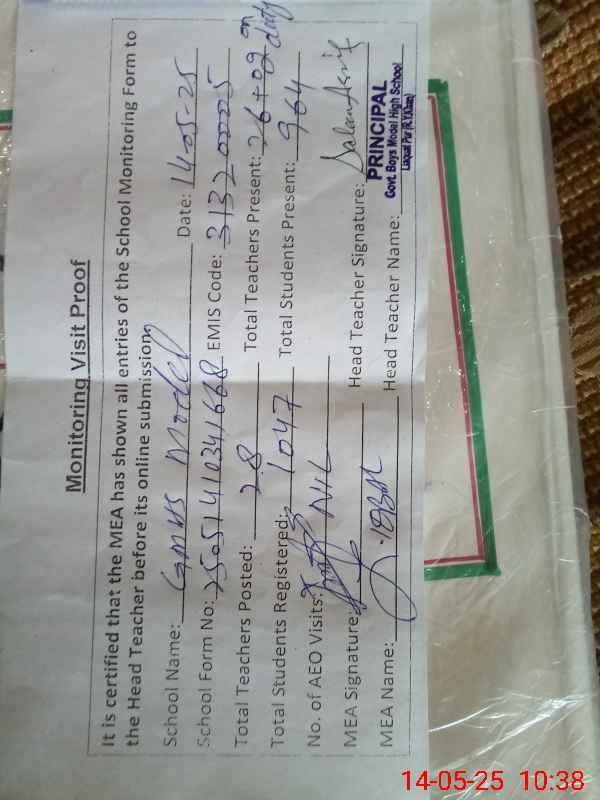 Monitoring Visit Proof
It is certified that the MEA has shown all entries of the School Monitoring Form to
the Head Teacher before its online submission.
School Name: GMHS Model Date: 14-05-25
School Form No: 25051410341668 EMIS Code: 31320005
Total Teachers Posted: 28 Total Teachers Present: 26+02 on duty
Total Students Registered: 1047 Total Students Present: 964
No. of AEO Visits: NIL
MEA Signature: Head Teacher Signature:
MEA Name: Head Teacher Name:
PRINCIPAL
Govt. Boys Model High School
14-05-25 10:38